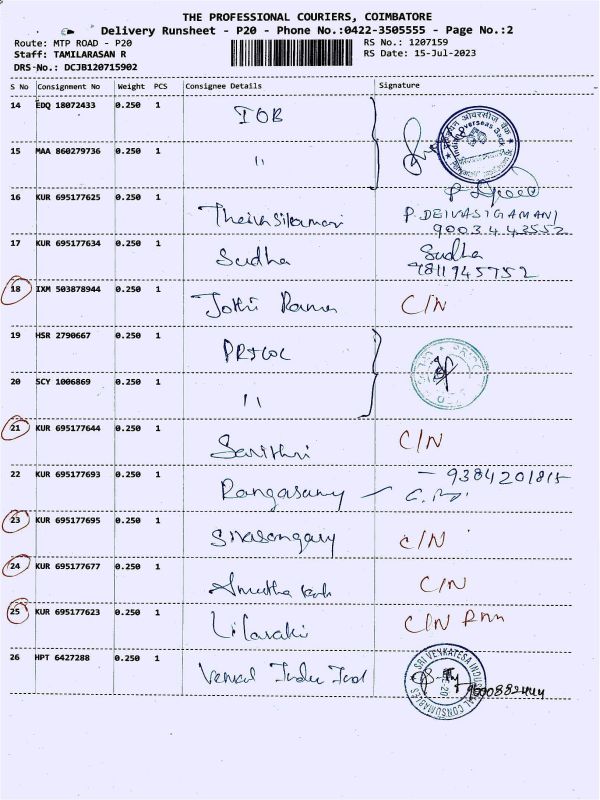 THE PROFESSIONAL COURIERS, COIMBATORE
Delivery Runsheet - P20 - Phone No.:0422-3505555 - Page No.:2
Route: MTP ROAD - P20 RS No.: 1207159
Staff: TAMILARASAN R RS Date: 15-Jul-2023
DRS No.: DCJB120715902
S No Consignment No Weight PCS Consignee Details Signature
14 EDQ 18072433 0.250 1 IOB
Indian Overseas Bank
15 MAA 860279736 0.250 1 "
16 KUR 695177625 0.250 1 P. DEIVASIGAMANI
90034 43552
17 KUR 695177634 0.250 1 Sudha Sudha
9811945752
18 IXM 503878944 0.250 1 Jothi C/N
19 HSR 2790667 0.250 1 PRICOL
20 SCY 1006869 0.250 1 "
21 KUR 695177644 0.250 1 Savithri C/N
22 KUR 695177693 0.250 1 Rangasamy - 9384201815
23 KUR 695177695 0.250 1 C/N
24 KUR 695177677 0.250 1 Amutha C/N
25 KUR 695177623 0.250 1 C/N
26 HPT 6427288 0.250 1
SRI VENKATESA INDUSTRIAL CONSUMABLES